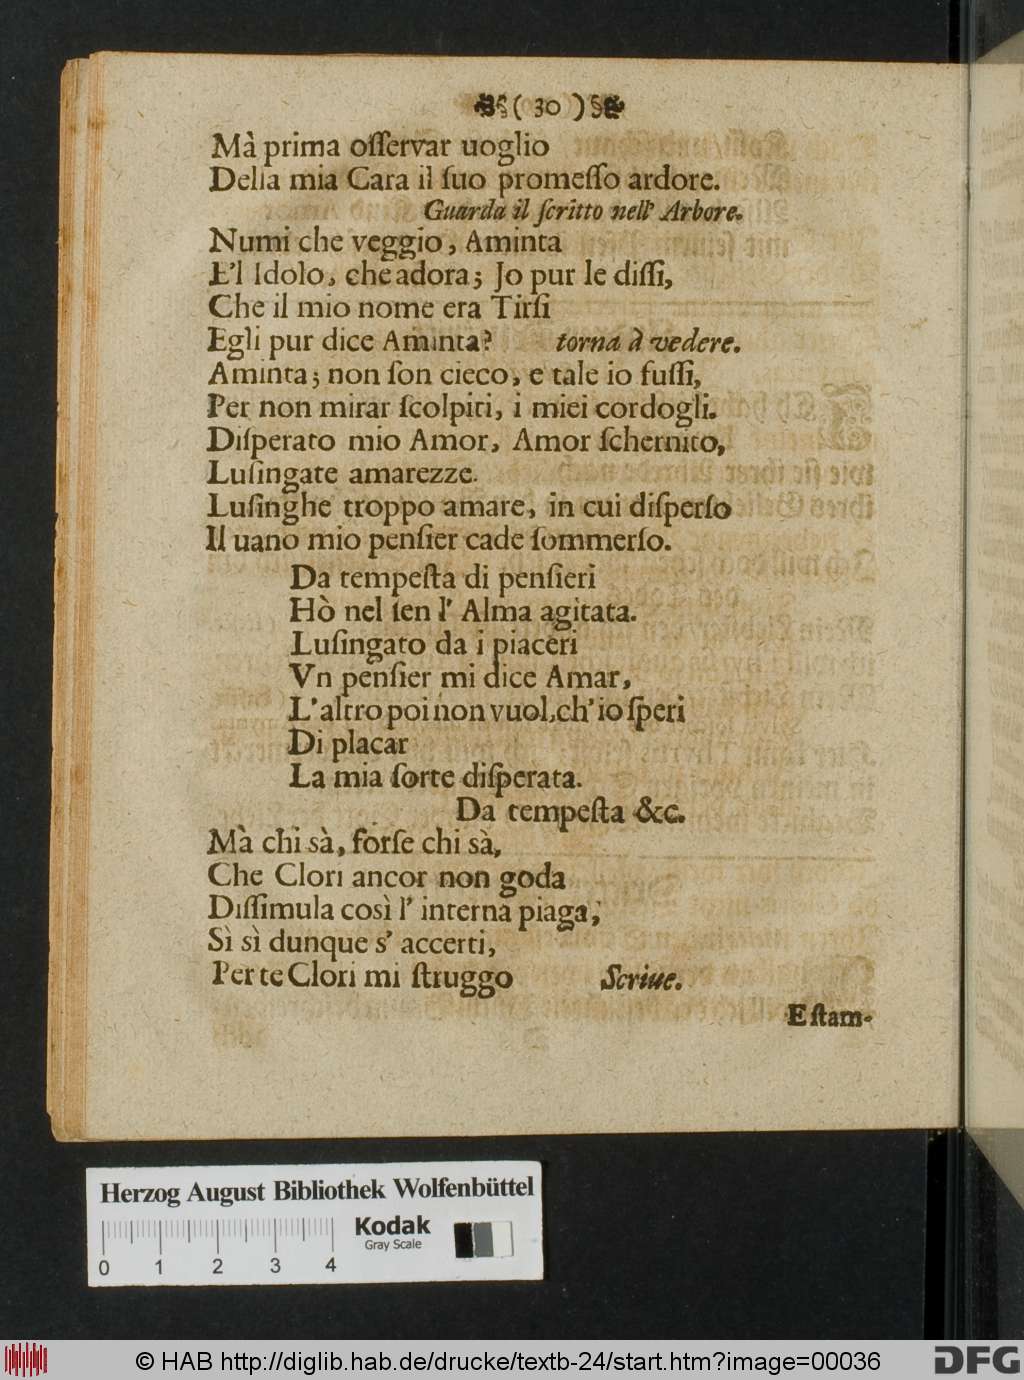 ( 30 )
Mà prima oſſervar uoglio
Della mia Cara il ſuo promeſſo ardore.
Guarda il ſcritto nell' Arbore.
Numi che veggio, Aminta
E'l Idolo, che adora; Jo pur le diſſi,
Che il mio nome era Tirſi
Egli pur dice Aminta? torna à vedere.
Aminta; non ſon cieco, e tale io fuſſi,
Per non mirar ſcolpiti, i miei cordogli.
Diſperato mio Amor, Amor ſchernito,
Luſingate amarezze.
Luſinghe troppo amare, in cui diſperſo
Il uano mio penſier cade ſommerſo.
Da tempeſta di penſieri
Hò nel ſen l' Alma agitata.
Luſingato da i piaceri
Vn penſier mi dice Amar,
L'altro poi non vuol, ch'io ſperi
Di placar
La mia ſorte diſperata.
Da tempeſta &c.
Mà chi sà, forſe chi sà,
Che Clori ancor non goda
Diſſimula così l' interna piaga,
Sì sì dunque s' accerti,
Per te Clori mi ſtruggo Scriue.
Eſtam-
Herzog August Bibliothek Wolfenbüttel
Kodak
Gray Scale
0 1 2 3 4
© HAB http://diglib.hab.de/drucke/textb-24/start.htm?image=00036
DFG